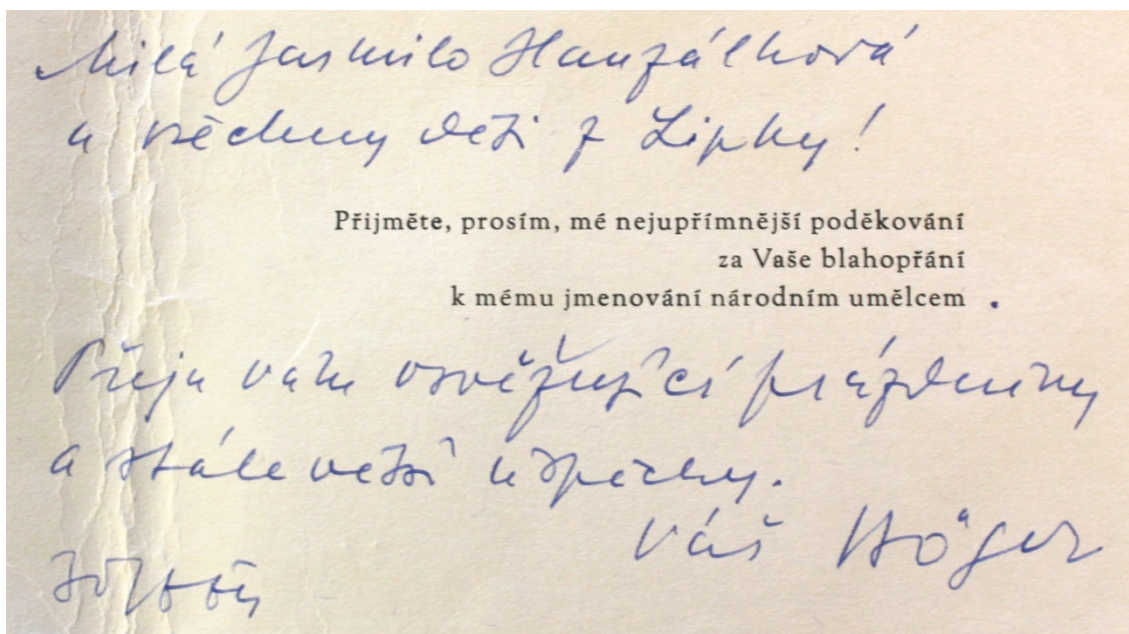 Milá Jasmilo Hanzálková
a všechny děti z Lipky!
Přijměte, prosím, mé nejupřímnější poděkování
za Vaše blahopřání
k mému jmenování národním umělcem.
Přeju vám osvěžující prázdniny
a stále větší úspěchy.
Váš Höger